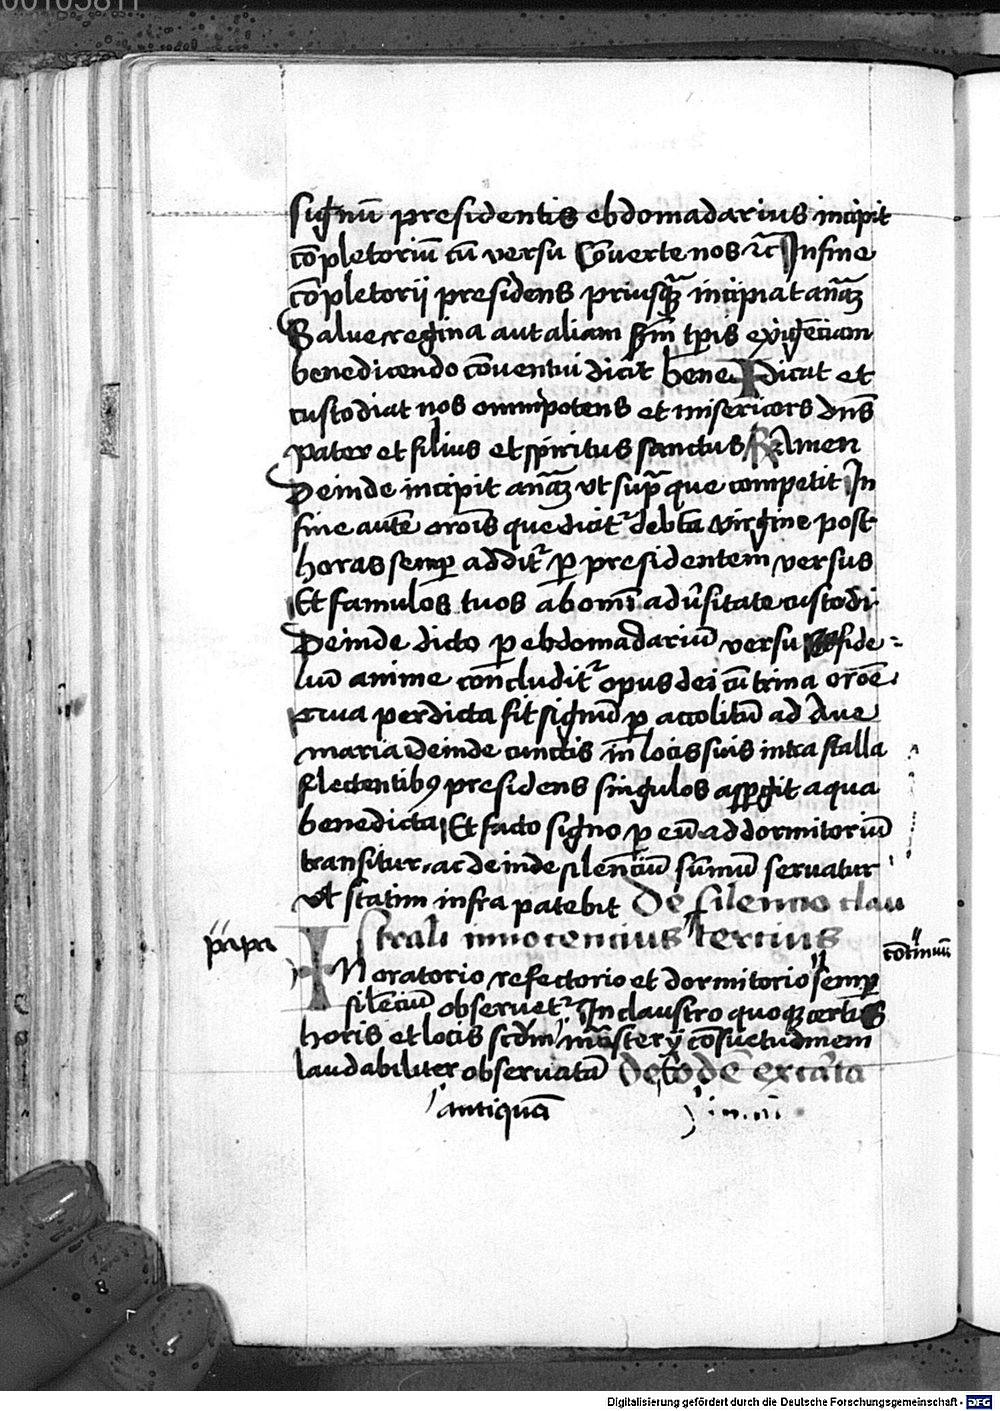 00105811
signū presidentis ebdomadarius incipit
cōpletoriū cū versu Cōuerte nos ⁊c̄ In fine
cōpletorij presidens priusqᷓ incipiat anāz
Salue regina aut aliam scḋm tꝑis exigēciam
benedicendo cōuentui dicit bene✝dicat et
custodiat nos omnipotens et misericors dn̄s
pater et filius et spiritus sanctus ℟ Amen
Deinde incipit anāz vt supᷓ que competit In
fine autē orōis que dicitᷣ de bt̄a virgine post
horas semꝑ additᷣ ꝑ presidentem versus
Et famulos tuos ab omī adūsitate custodi
Deinde dicto ꝑ ebdomadariū versu fide=
liū anime concluditᷣ opus dei cū trina orōe
qua perdicta fit signū ꝑ accolitū ad Aue
maria deinde cunctis in locis suis intra stalla
flectentibꝰ presidens singulos aspgit aqua
benedicta Et facto signo ꝑ eū ad dormitoriū
transitur, ac deinde silenciū sūmū seruatur
vt statim infra patebit De silencio clau
strali innocencius tercius
papa
In oratorio refectorio et dormitorio semꝑ
cōtinuū
silēciū obseruetᷣ In claustro quoqꝫ certis
horis et locis scḋm mōasterij cōsuetudinem
laudabiliter obseruatā De eodē ex ca̅ta
antiquā
Digitalisierung gefördert durch die Deutsche Forschungsgemeinschaft - DFG